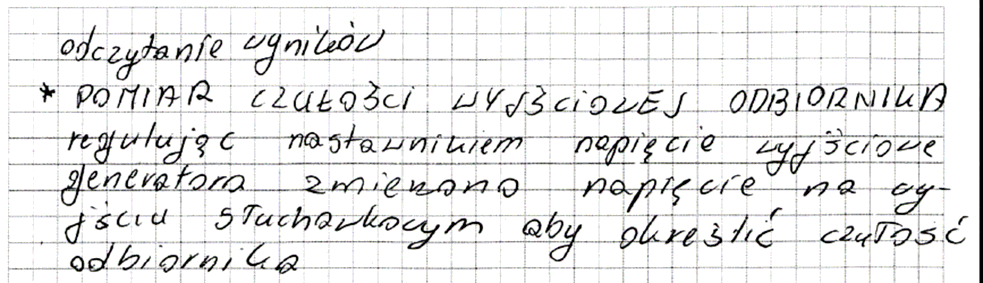 odczytanie wyników
* POMIAR CZUŁOŚCI WYJŚCIOWEJ ODBIORNIKA
regulując nastawnikiem napięcie wyjściowe
generatora zmierzono napięcie na wy-
jściu słuchawkowym aby określić czułość
odbiornika